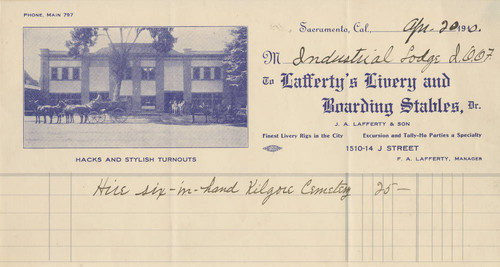 PHONE, MAIN 757
Sacramento, Cal., Apr. 20 1910.
M Industrial Lodge I.O.O.F
To Lafferty's Livery and
Boarding Stables, Dr.
J. A. LAFFERTY & SON
Finest Livery Rigs in the City Excursion and Tally-Ho Parties a Specialty
1510-14 J STREET
F. A. LAFFERTY, MANAGER
HACKS AND STYLISH TURNOUTS
Hire six-in-hand Kilgore Cemetery 25—